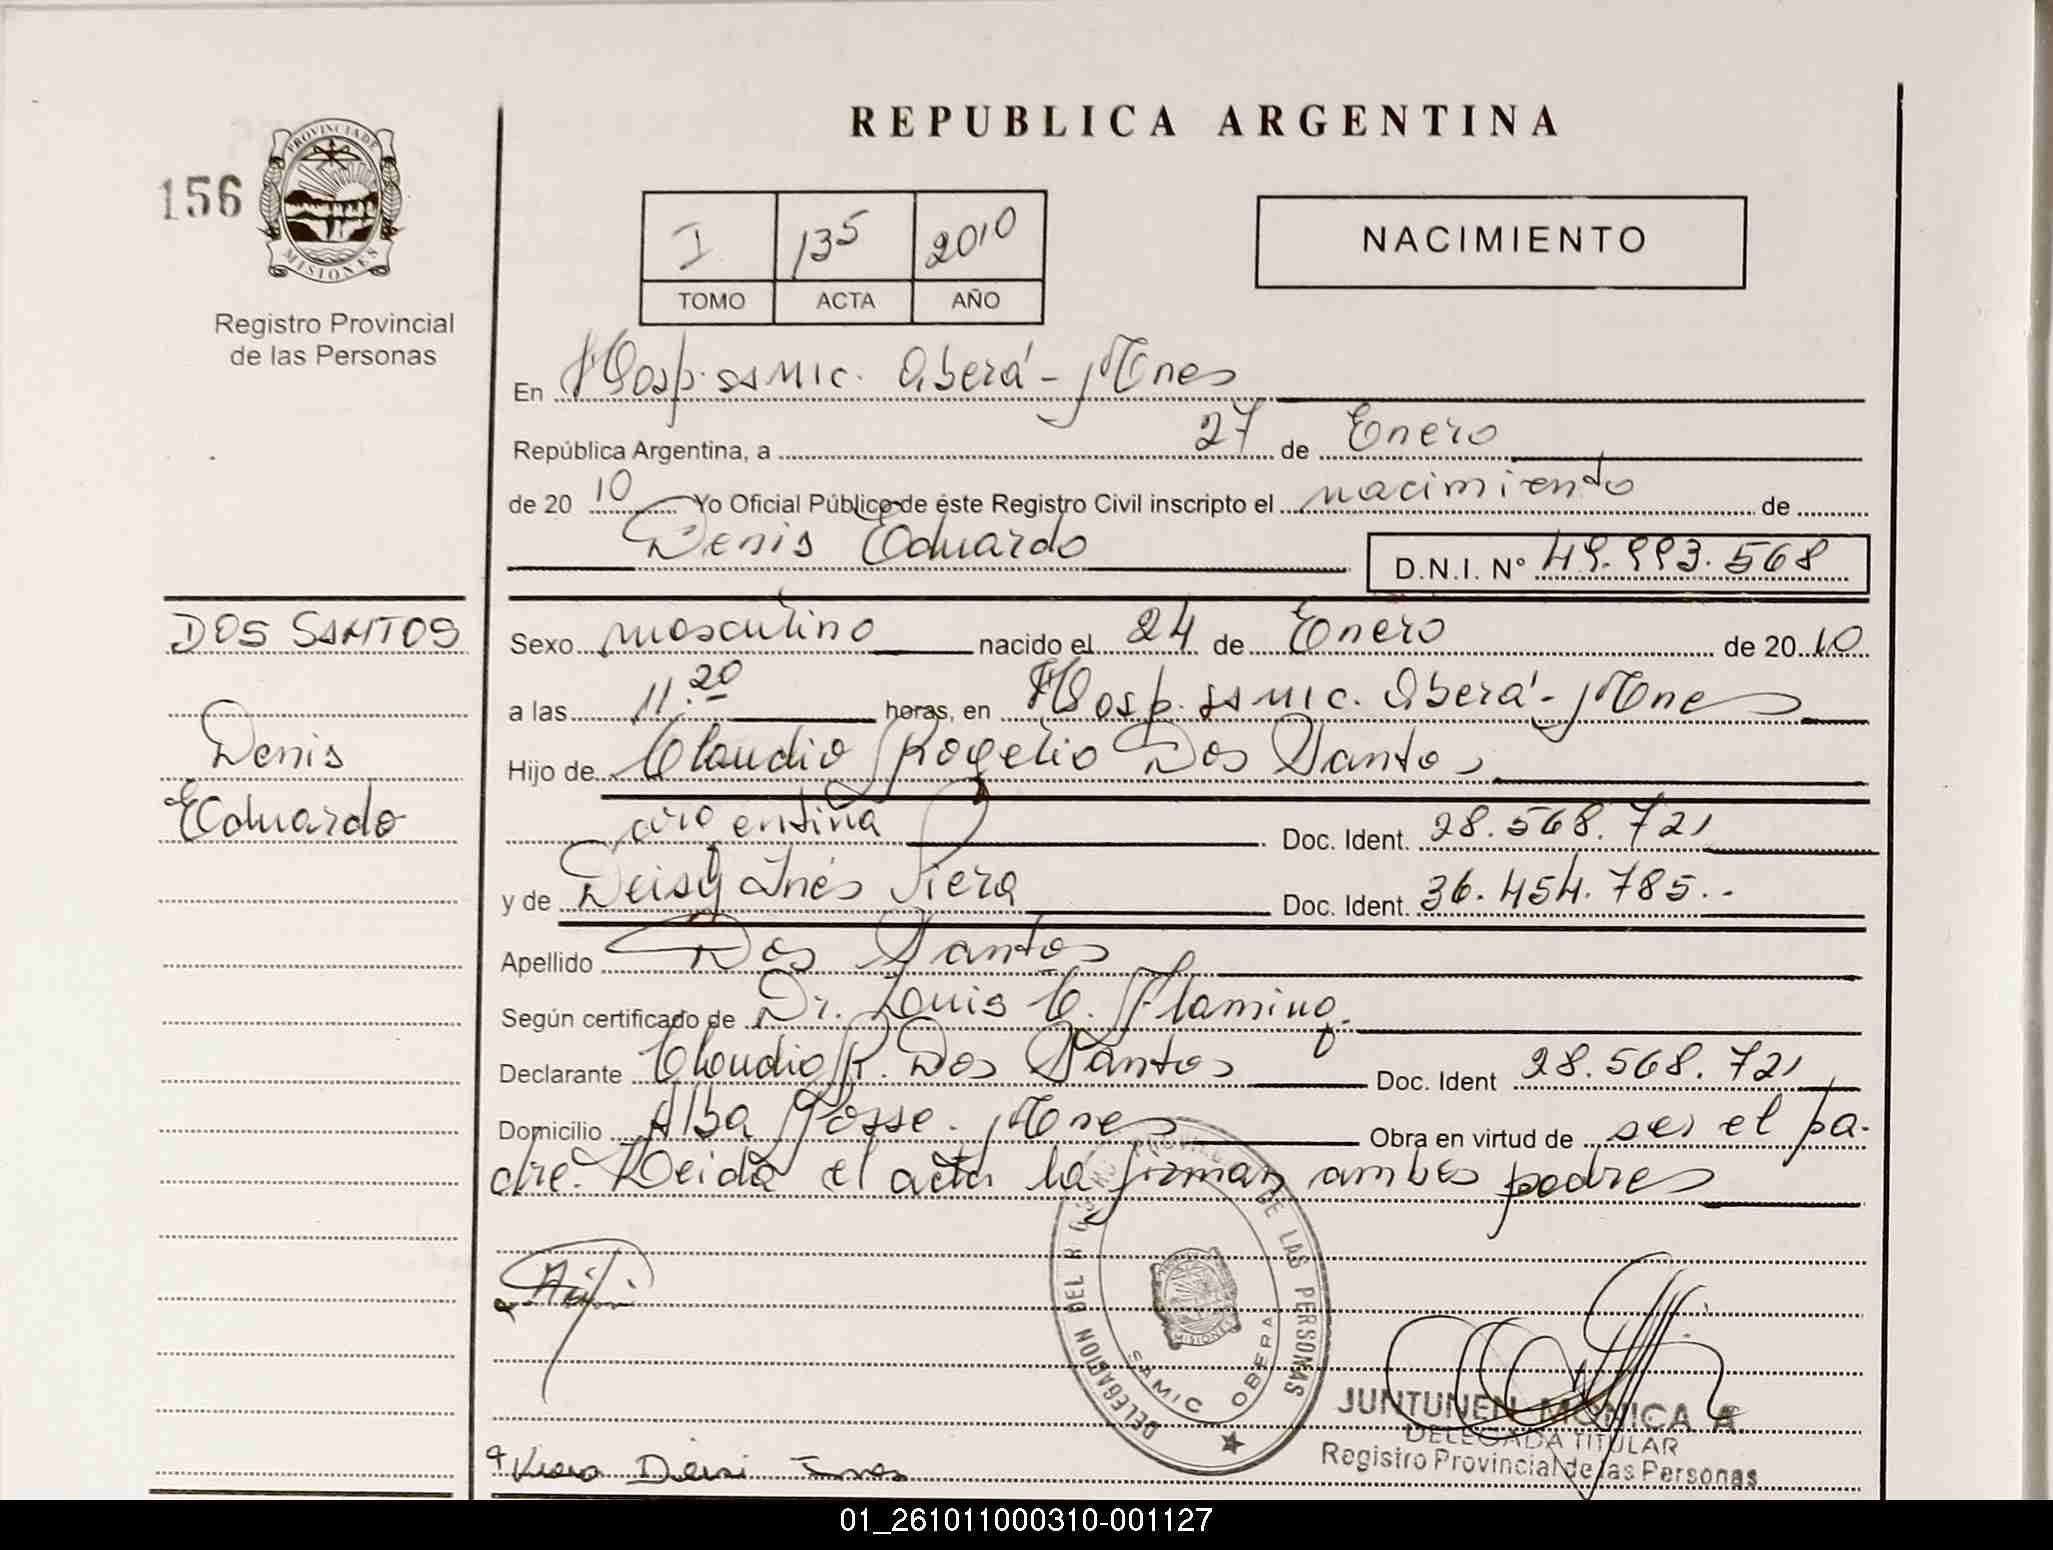 REPUBLICA ARGENTINA
156
PROVINCIA DE
MISIONES
Registro Provincial
de las Personas
I 135 2010
TOMO ACTA AÑO
NACIMIENTO
En Hosp. ssmic. Oberá - Mnes
República Argentina, a 27 de Enero
de 20 10 Yo Oficial Público de éste Registro Civil inscripto el nacimiento de
Denis Eduardo D.N.I. Nº 49.993.568
DOS SANTOS
Denis
Eduardo
Sexo masculino nacido el 24 de Enero de 20 10
a las 11.20 horas, en Hosp. ssmic. Oberá - Mnes
Hijo de Claudio Rogelio Dos Santos
argentina Doc. Ident. 28.568.721
y de Deisy Inés Viera Doc. Ident. 36.454.785.-
Apellido Dos Santos
Según certificado de Dr. Louis C. Flaming.
Declarante Claudio R. Dos Santos Doc. Ident 28.568.721
Domicilio Alba Posse. Mnes Obra en virtud de ser el pa-
dre. Leida el acta la firman ambos padres
DELEGACION DEL R PROVINCIAL DE LAS PERSONAS
MISIONES
SAMIC OBERA
JUNTUNEN MONICA A.
DELEGADA TITULAR
Registro Provincial de las Personas
01_261011000310-001127